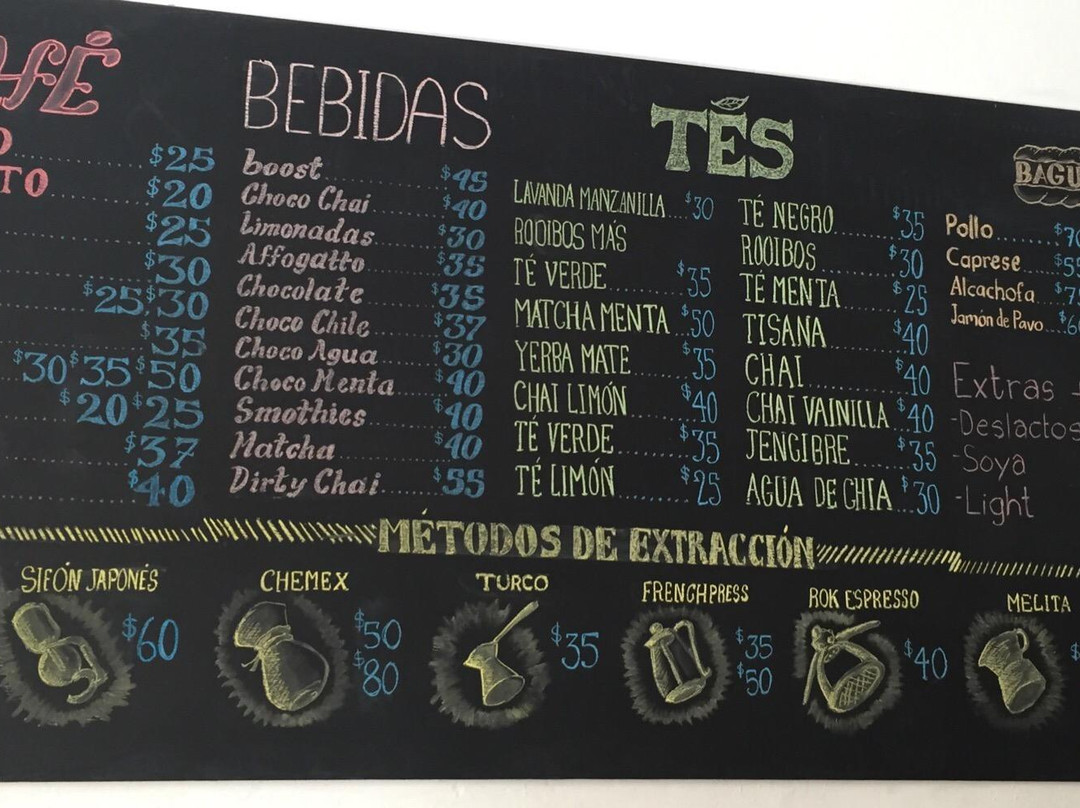 BEBIDAS
boost $45
Choco Chai $40
Limonadas $30
Affogatto $35
Chocolate $35
Choco Chile $37
Choco Agua $30
Choco Menta $40
Smothies $40
Matcha $40
Dirty Chai $55
$25
TO $20
$25
$30
$25 $30
$35
$30 $35 $50
$20 $25
$37
$40
TÉS
LAVANDA MANZANILLA $30
ROOIBOS MÁS
TÉ VERDE $35
MATCHA MENTA $50
YERBA MATE $35
CHAI LIMÓN $40
TÉ VERDE $35
TÉ LIMÓN $25
TÉ NEGRO $35
ROOIBOS $30
TÉ MENTA $25
TISANA $40
CHAI $40
CHAI VAINILLA $40
JENGIBRE $35
AGUA DE CHIA $30
BAGU
Pollo
Caprese
Alcachofa
Jamón de Pavo
Extras -
-Deslactos
-Soya
-Light
MÉTODOS DE EXTRACCIÓN
SIFÓN JAPONÉS
$60
CHEMEX
$50
$80
TURCO
$35
FRENCHPRESS
$35
$50
ROK ESPRESSO
$40
MELITA